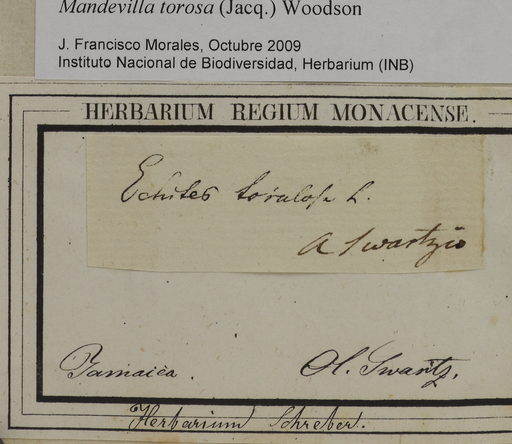 Mandevilla torosa (Jacq.) Woodson
J. Francisco Morales, Octubre 2009
Instituto Nacional de Biodiversidad, Herbarium (INB)
HERBARIUM REGIUM MONACENSE.
Echites torulosa L.
A Swartzio
Jamaica.
Ol. Swartz.
Herbarium Schreber.